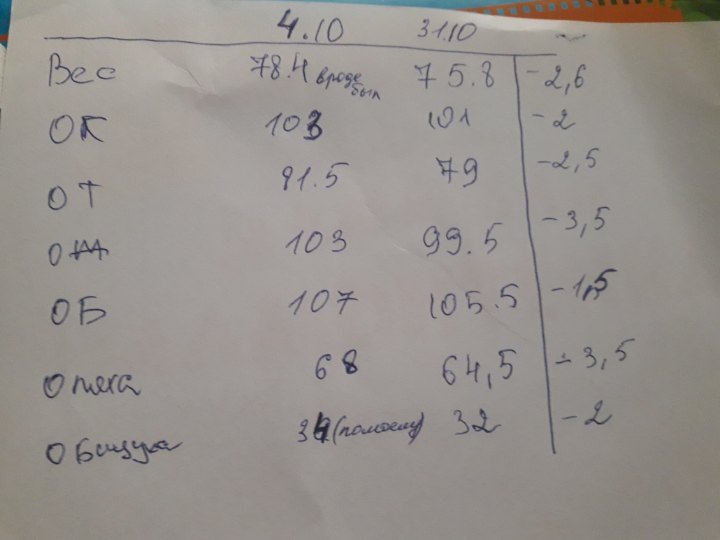 4.10 31.10
Вес 78.4 вроде был 75.8 -2,6
ОГ 103 101 -2
ОТ 81.5 79 -2,5
ОЖ 103 99.5 -3,5
ОБ 107 105.5 -1,5
О ляха 68 64,5 -3,5
О Бицуха 34 (помоему) 32 -2